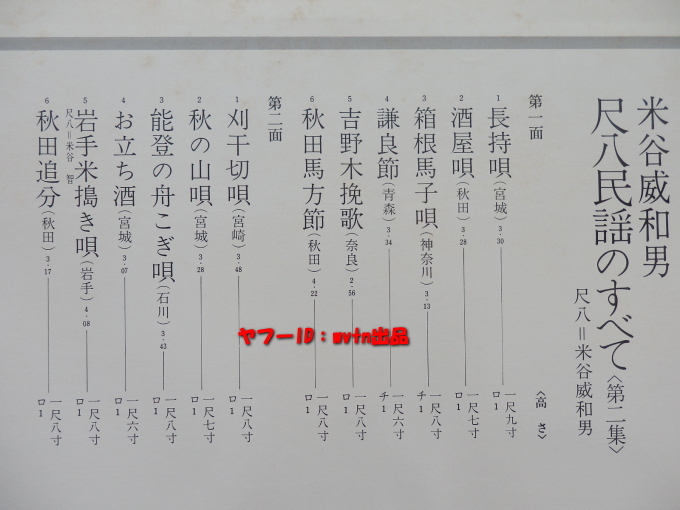 米谷威和男
尺八民謡のすべて〈第二集〉
尺八＝米谷威和男
〈高さ〉
第一面
1 長持唄(宮城)3・30 一尺九寸 ロ1
2 酒屋唄(秋田)3・28 一尺七寸 ロ1
3 箱根馬子唄(神奈川)3・13 一尺八寸 チ1
4 謙良節(青森)3・34 一尺六寸 チ1
5 吉野木挽歌(奈良)2・56 一尺八寸 ロ1
6 秋田馬方節(秋田)4・22 一尺八寸 ロ1
第二面
1 刈干切唄(宮崎)3・48 一尺八寸 ロ1
2 秋の山唄(宮城)3・28 一尺七寸 ロ1
3 能登の舟こぎ唄(石川)3・43 一尺八寸 ロ1
4 お立ち酒(宮城)3・07 一尺六寸 ロ1
5 岩手米搗き唄(岩手)4・08 一尺八寸 ロ1
尺八＝米谷 智
6 秋田追分(秋田)3・17 一尺八寸 ロ1
ヤフーID：wvtn出品